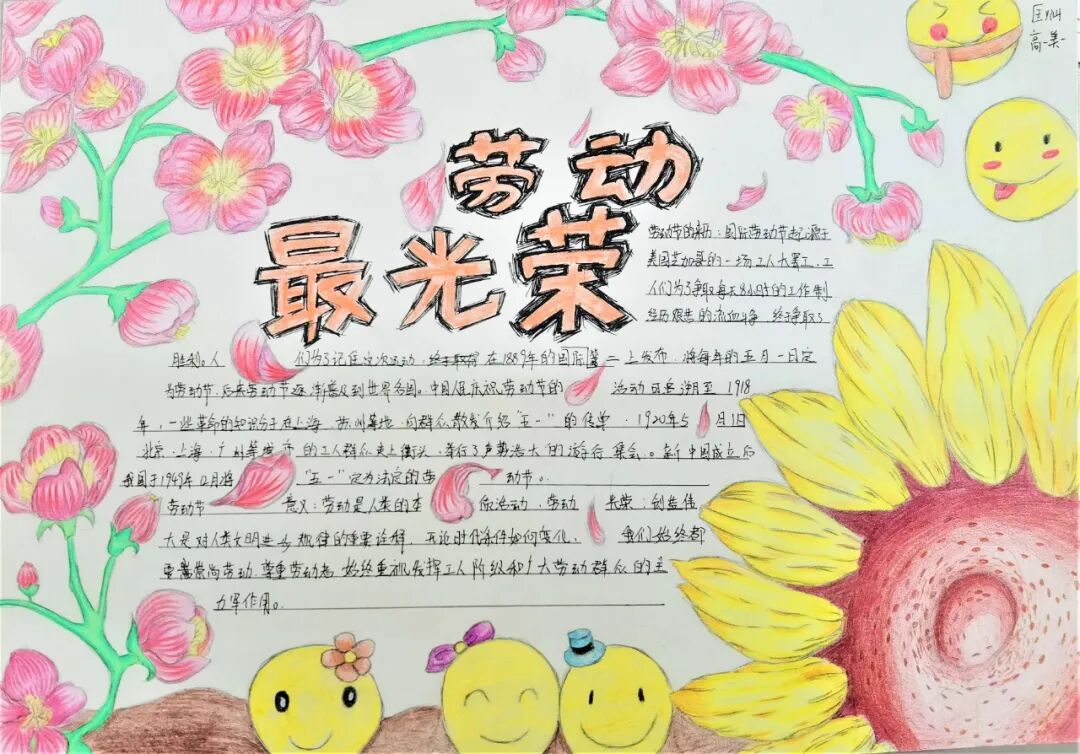 高一美一
劳动
最光荣
劳动节的来历：国际劳动节起源于
美国芝加哥的一场工人大罢工，工
人们为了争取每天8小时的工作制
经历艰苦的流血斗争，终于争取了
胜利。人们为了记住这次运动，终于取得在1889年的国际第二上发布，将每年的五月一日定
劳动节，后来劳动节逐渐普及到世界各国。中国人民庆祝劳动节的活动可追溯至1918
年，一些革命的知识分子在上海、苏州等地向群众散发介绍"五一"的传单，1920年5月1日
北京、上海、广州等城市的工人群众走上街头，举行了声势浩大的游行、集会。新中国成立后
我国于1949年12月将"五一"定为法定的劳动节。
劳动节意义：劳动是人类的本质活动，劳动光荣；创造伟
大是对人类文明进步规律的重要诠释，无论时代条件如何变化，我们始终都
要崇尚劳动，尊重劳动者，始终重视发挥工人阶级和广大劳动群众的主
力军作用。